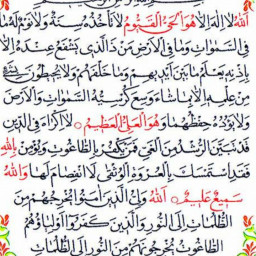 ٱللَّهُ لَا إِلَٰهَ إِلَّا هُوَ ٱلْحَيُّ ٱلْقَيُّومُ لَا تَأْخُذُهُ سِنَةٌ وَلَا نَوْمٌ لَهُ مَا
فِي ٱلسَّمَٰوَاتِ وَمَا فِي ٱلْأَرْضِ مَنْ ذَا ٱلَّذِي يَشْفَعُ عِنْدَهُ إِلَّا
بِإِذْنِهِ يَعْلَمُ مَا بَيْنَ أَيْدِيهِمْ وَمَا خَلْفَهُمْ وَلَا يُحِيطُونَ بِشَيْءٍ
مِنْ عِلْمِهِ إِلَّا بِمَا شَاءَ وَسِعَ كُرْسِيُّهُ ٱلسَّمَٰوَاتِ وَٱلْأَرْضَ
وَلَا يَؤُدُهُ حِفْظُهُمَا وَهُوَ ٱلْعَلِيُّ ٱلْعَظِيمُ لَا إِكْرَاهَ فِي ٱلدِّينِ
قَدْ تَبَيَّنَ ٱلرُّشْدُ مِنَ ٱلْغَيِّ فَمَنْ يَكْفُرْ بِٱلطَّاغُوتِ وَيُؤْمِنْ بِٱللَّهِ
فَقَدِ ٱسْتَمْسَكَ بِٱلْعُرْوَةِ ٱلْوُثْقَىٰ لَا ٱنْفِصَامَ لَهَا وَٱللَّهُ
سَمِيعٌ عَلِيمٌ ٱللَّهُ وَلِيُّ ٱلَّذِينَ آمَنُوا يُخْرِجُهُمْ مِنَ
ٱلظُّلُمَاتِ إِلَى ٱلنُّورِ وَٱلَّذِينَ كَفَرُوا أَوْلِيَاؤُهُمُ
ٱلطَّاغُوتُ يُخْرِجُونَهُمْ مِنَ ٱلنُّورِ إِلَى ٱلظُّلُمَاتِ